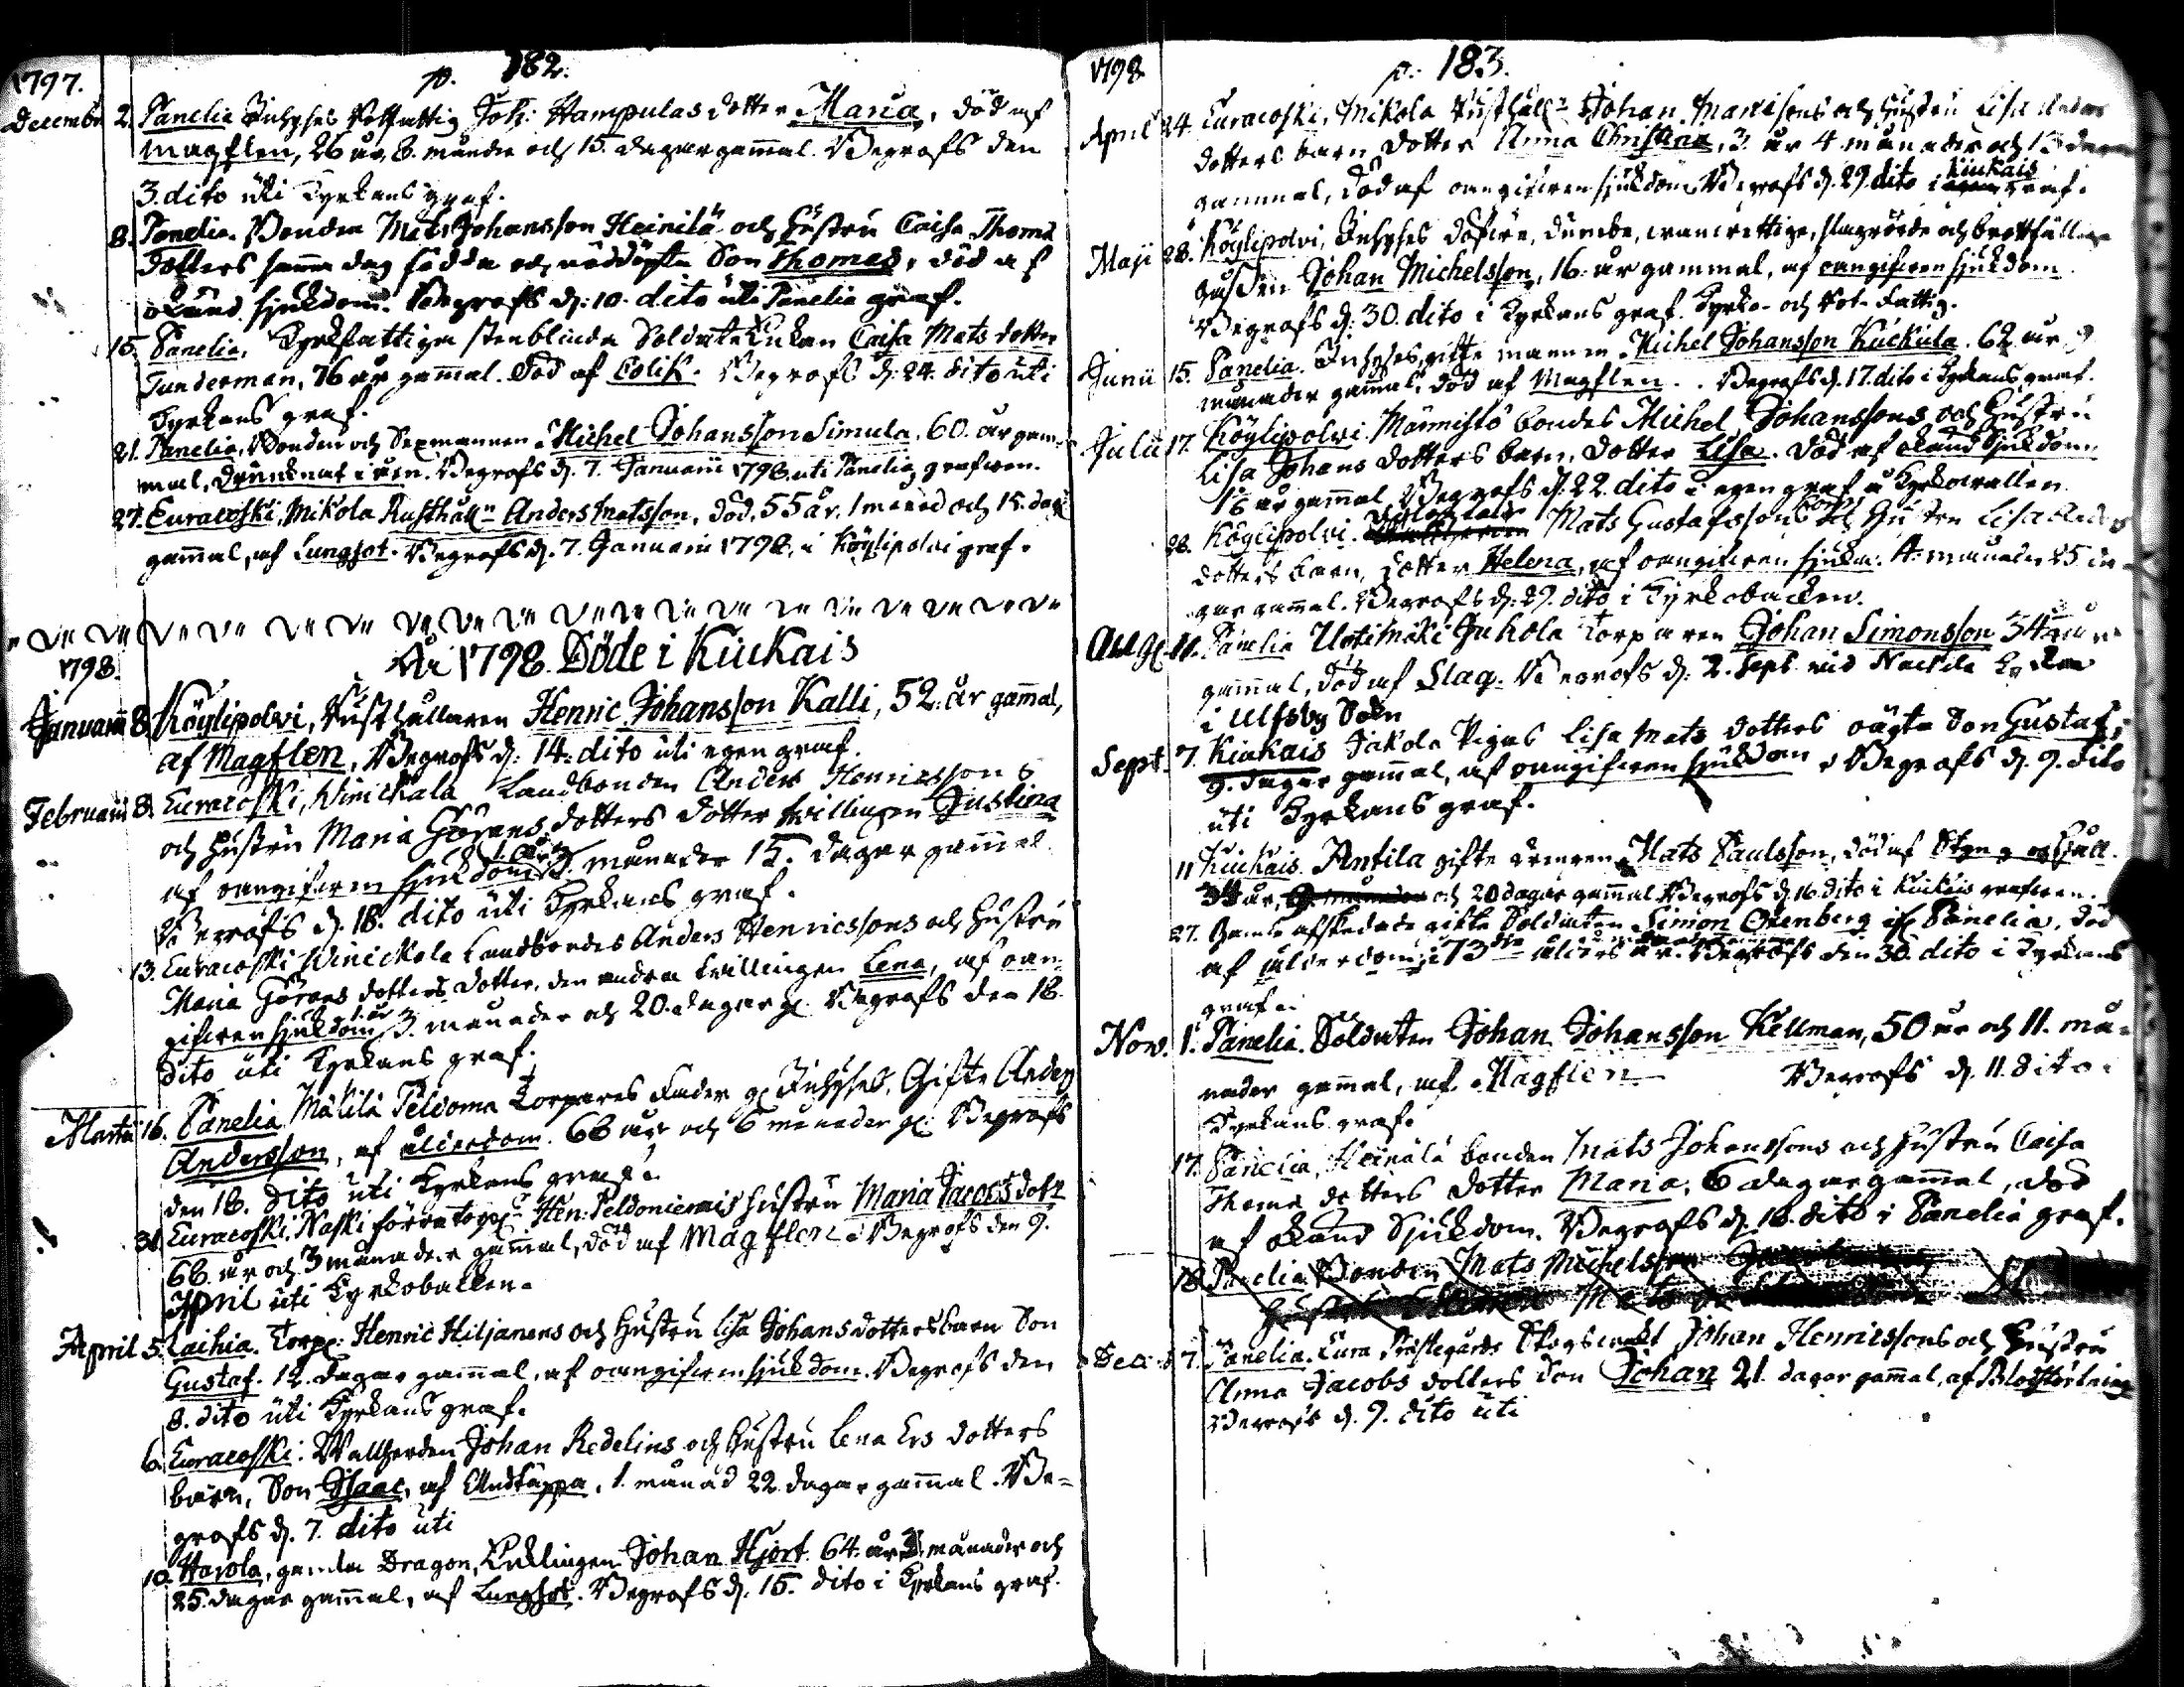 1797. p. 182.
December 2. Panelia Inhyses Rotfattig Joh: Hampulas dotter Maria, död af
Magflen, 26 år, 8. månder och 15. dagar gammal. Begrofs den
3. dito uti Kyrkans graf.
8. Panelia. Bonden Mats Johansson Heinilä och hustru Caisa Thomæ
dotters samma dag födda och nöddöpta Son Thomas, död af
okänd sjukdom. Begrofs d: 10. dito uti Panelia graf.
15. Panelia, Kyrkfattiga stenblinda Soldate Enkan Caisa Mats dotter
Tunderman, 76 år gammal. Död af Colik. Begrofs d: 24. dito uti
Kyrkans graf.
21. Panelia, Bonden och Sexmannen Michel Johansson Simula, 60. år gam-
mal, drunknat i ån. Begrofs d. 7. Januarii 1798 uti Panelia grafven.
27. Euracoski, Mikola Rusthåll:n Anders Matsson, död, 55 år. 1 månad och 15. dagar
gammal, af Lungsot. Begrofs d. 7. Januarii 1798, i Köylipolvi graf.
1798. År 1798. Döde i Kiukais
Januarii 8. Köylipolvi, Rusthållaren Henric Johansson Kalli, 52. år gammal,
af Magflen, Begrofs d: 14. dito uti egen graf.
Februarii 8. Euracoski, Winickala Landbonden Anders Henricssons
och hustru Maria Görans dotters dotter tvillingen Justina
af oangifven sjukdom 1. år 3. månader 15. dagar gammal.
Begrofs d. 18. dito uti Kyrkans graf.
13. Euracoski Winickala Landbondes Anders Henricssons och hustru
Maria Görans dotters dotter, den andra tvillingen Lena, af oan-
gifven sjukdom, 1. år 3. månader och 20. dagar gl. Begrofs den 18.
dito uti Kyrkans graf.
Martii 16. Panelia Mälilä Peldoma torpares Fader gl Inhyses, Gifte Anders
Andersson, af ålderdom. 66 år och 6 månader gl: Begrofs
den 18. dito uti Kyrkans graf.
31. Euracoski, Naski förra torp:n Hen: Peldoniemis hustru Maria Jacobs dotr
66. år och 3 månader gammal, död af Magflen. Begrofs den 9.
April uti Kyrkobacken.
April 5. Laihia. Torp: Henric Hiljanens och hustru Lisa Johans dotters barn Son
Gustaf. 12. dagar gammal, af oangifven sjukdom. Begrofs den
8. dito uti Kyrkans graf.
6. Euracoski: Wallherden Johan Redelins och hustru Lena Ers dotters
barn, Son Isaac, af Andtäppa, 1. månad 22 dagar gammal. Be-
grofs d. 7. dito uti
10. Harola, gamla Dragon, Enklingen Johan Hjort. 64. år månader och
25. dagar gammal, af Lungsot. Begrofs d. 15. dito i Kyrkans graf.
1798 p. 183.
April 24. Euracoski, Mikola Rusthåll:n Johan Mattsons och hustru Lisa Anders
dotters barn dotter Anna Christina, 3. år 4 månader och 13 dagar
gammal, död af oangifven sjukdom. Begrofs d. 29. dito i Kiukais graf.
Maji 28. Köylipolvi, Inhyses döfve, dumbe, vanvettige, slagrörde och brottfällige
gossen Johan Michelsson, 16. år gammal, af oangifven sjukdom
Begrofs d. 30. dito i Kyrkans graf. Kyrko- och Rot-fattig.
Junii 15. Panelia. Inhyses, gifte mannen Michel Johansson Kuckula. 62 år 9
månader gammal, död af Magflen. Begrofs d. 17. dito i Kyrkans graf.
Julii 17. Köylipolvi Männistö bondes Michel Johanssons och hustru
Lisa Johans dotters barn, dotter Lisa. Död af okänd Sjukdom
år gammal. Begrofs d. 22. dito i egen graf å Kyrkovallen.
28. Köylipolvi. Mats Gustafssons och hustru Lisa Anders
dotters barn, dotter Helena, af oangifven sjukd. 4. månader 25 da-
gar gammal. Begrofs d. 29. dito i Kyrkobacken.
Aug. Panelia Uotinmäki Juhola torparen Johan Simonsson 54 år
gammal, död af Slag. Begrofs d: 2. Sept vid Nackila Kyrka
i Ulfsby Sokn
Sept. 7. Kiukais Jakola Pigas Lisa Mats dotters oägta Son Gustaf,
9. dagar gammal, af oangifven sjukdom. Begrofs d. 9. dito
uti Kyrkans graf.
11 Kiukais. Antila gifte drengen Mats Paulsson, död af Styng och Håll.
34 år, 9 månader och 20 dagar gammal Begrofs d. 16. dito i Kiukais grafven.
27. Gamle afskedade gifte Soldaten Simon Orenberg ifr. Panelia, död
af ålderdom, i 73:dje ålders år. Begrofs den 30. dito i Kyrkans
graf.
Nov. 1. Panelia. Soldaten Johan Johansson Kellman, 50 år och 11. må-
nader gammal, af Magflen Begrofs d. 11. dito
Kyrkans graf.
17. Panelia, Heinälä bonden Mats Johanssons och hustru Caisa
Thomæ dotters dotter Maria, 6 dagar gammal, död
af okänd Sjukdom. Begrofs d. 18. dito i Panelia graf.
18. Panelia Bonden Mats Michelsson
hustru Mats
Dec. 7. Panelia. Eura Prästegårds Skogsvakt Johan Henricssons och hustru
Anna Jacobs dotters Son Johan 21. dagar gammal, af Blodstörtning
Begrofs d. 9. dito uti